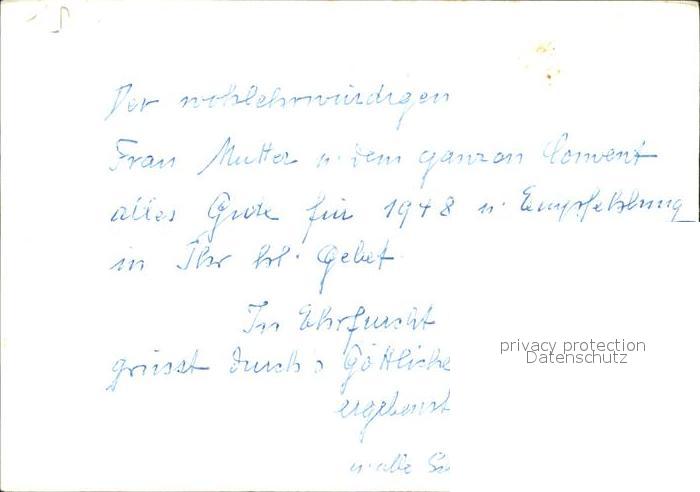 Der wohlehrwürdigen
Frau Mutter u. dem ganzen Convent
alles Gute für 1948 u. Empfehlung
in Ihr hl. Gebet
In Ehrfurcht
grüsst durch's Göttliche
privacy protection
Datenschutz
ergebenst
u. alle